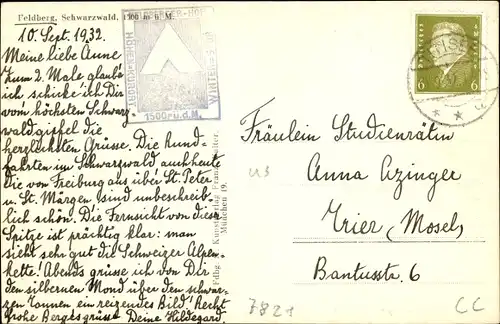 Feldberg, Schwarzwald, 1500 m ü. M.
10. Sept. 1932.
Meine liebe Anne
zum 2. Male glaub'
ich schicke ich Dir
vom höchsten Schwarz-
waldgipfel die
herzlichsten Grüsse. Die Rund-
fahrten im Schwarzwald auch heute
die von Freiburg aus über St. Peter
u. St. Märgen sind unbeschreib-
lich schön. Die Fernsicht von dieser
Spitze ist prächtig klar: man
sieht sehr gut die Schweizer Alpen-
kette! Abends grüsse ich von Dir
den silbernen Mond über den schwar-
zen Tannen ein reizendes Bild! Recht
frohe Bergesgrüsse Deine Hildegard.
1500 ü. d. M.
Kunstverlag Franz
München 19.
6 6
Fräulein Studienrätin
Anna Azinger
Trier (Mosel)
Bantusstr. 6
7821
CC